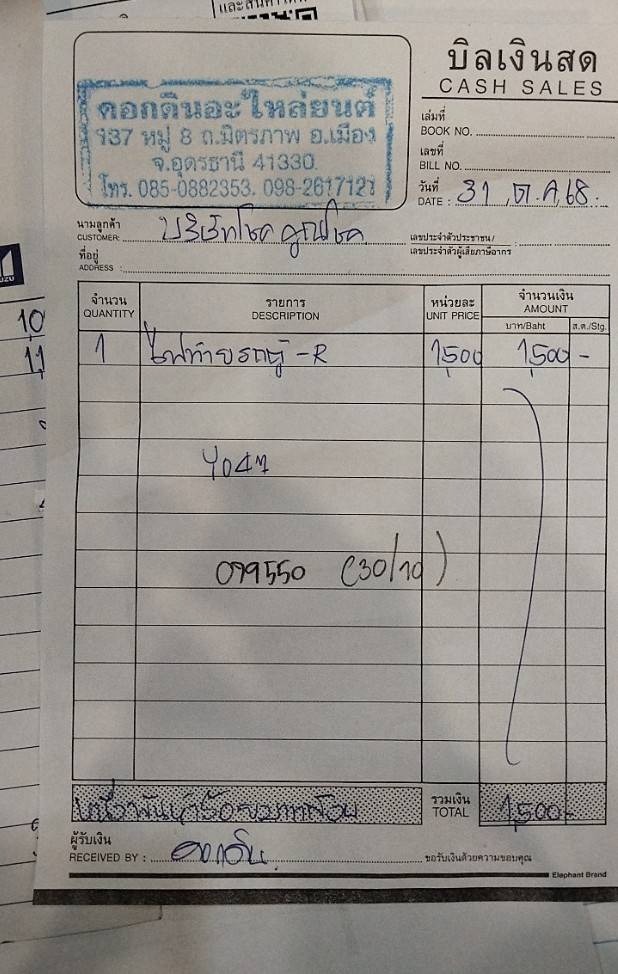 และสินค้า
บิลเงินสด
CASH SALES
ดอกดินอะไหล่ยนต์
137 หมู่ 8 ถ.มิตรภาพ อ.เมือง
จ.อุดรธานี 41330.
โทร. 085-0882353. 098-2617121
เล่มที่
BOOK NO.
เลขที่
BILL NO.
วันที่
DATE : 31 ต.ค. 68.
นามลูกค้า
CUSTOMER: บริษัทโชคคูณโชค
เลขประจำตัวประชาชน/
เลขประจำตัวผู้เสียภาษีอากร :
ที่อยู่
ADDRESS :
จำนวน รายการ หน่วยละ จำนวนเงิน
QUANTITY DESCRIPTION UNIT PRICE AMOUNT
บาท/Baht ส.ต./Stg.
1 ไฟท้ายรถตู้ -R 1,500 1,500 -
079550 (30/10)
หนึ่งพันห้าร้อยบาทถ้วน
รวมเงิน
TOTAL 1,500-
ผู้รับเงิน
RECEIVED BY : ดอกดิน
ขอรับเงินด้วยความขอบคุณ
Elephant Brand
10
11